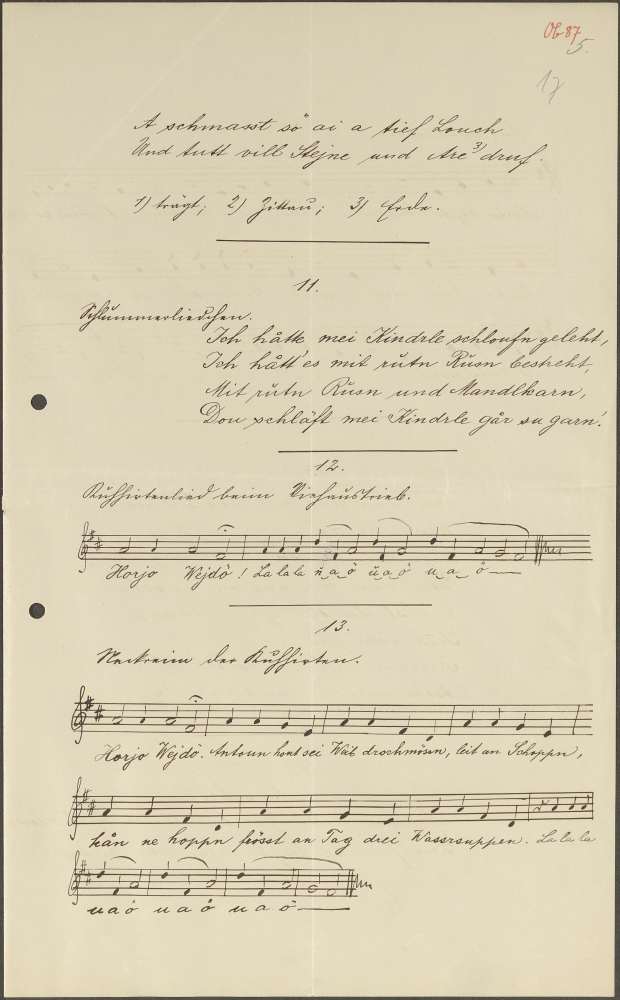 Ob 87
5.
17
A schmasst sö ai a tief Louch
Und tutt vill Stejne und Are ³⁾ druf.
1) trägt; 2) Zittau; 3) Erde.
11.
Schlummerliedchen.
Ich håtte mei Kindrle schloufn geleht,
Ich hått's es mit rutn Rusn bestreht,
Mit rutn Rusn und Mandlkarn,
Dou schläft mei Kindrle går su garn!
12.
Kuhhirtenlied beim Viehaustrieb.
Horjo Wejdö! La la la u a ö u a ö u a ö
13.
Neckreim der Kuhhirten.
Horjo Wejdö. Antoun hont sei Wäb droschmössn, leit an Schoppn,
kån ne hoppn frösst an Tag drei Wassrsuppen. La la la
u a ö u a ö u a ö